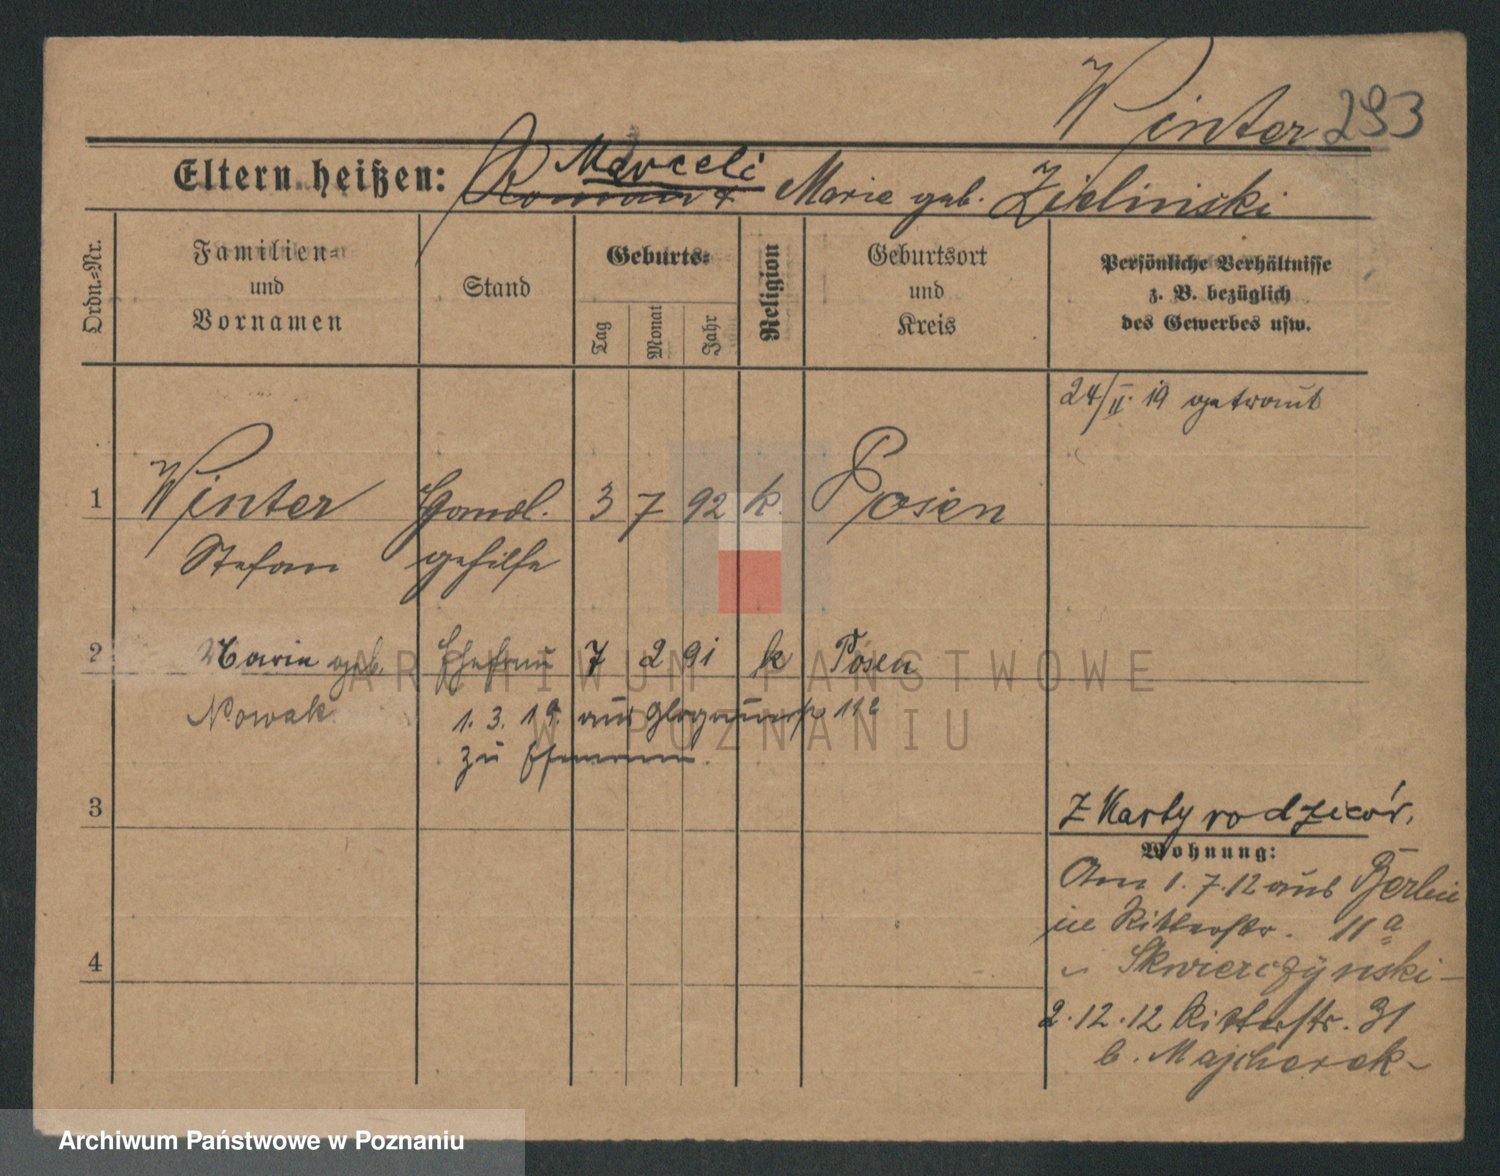 Winter 293
Eltern heißen: Roman Marceli & Marie geb. Zielinski
Ordn.-Nr.
Familien- und Vornamen
Stand
Geburts-
Tag
Monat
Jahr
Religion
Geburtsort und Kreis
Persönliche Verhältnisse
z. B. bezüglich
des Gewerbes usw.
24/II. 19 getraut
1 Winter Handl. 3 7 92 k. Posen
Stefan gehilfe
2 Maria geb. Ehefrau 7 2 91 k Posen
Nowak 1. 3. 19. aus Glogauerstr 11a
zu Ehemann.
3
4
Z Karty rodziców.
Wohnung:
Am 1. 7. 12 aus Berlin
in Ritterstr. 11a
Skwierczyński
2. 12. 12 Ritterstr. 31
b. Majcherek
ARCHIWUM PAŃSTWOWE
W POZNANIU
Archiwum Państwowe w Poznaniu